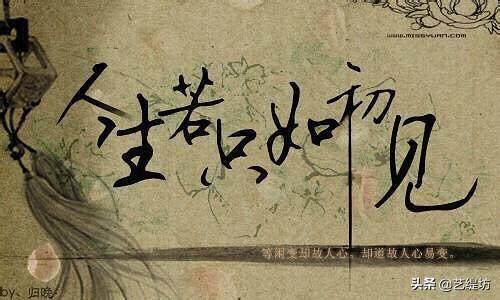 www.missyuan.com
人生若只如初见
等闲变却故人心。却道故人心易变。
by、归晚
头条 @艺缇坊